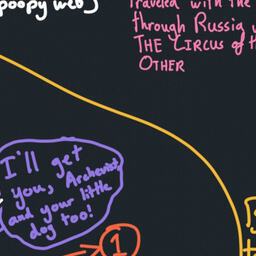 poopy webs
Traveled with the
through Russia
THE CIRCUS of th
OTHER
I'll get
you, Archenist
and your little
dog too!
1